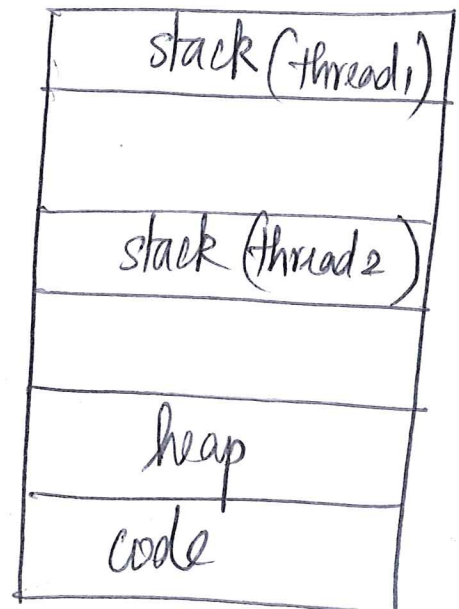 stack (thread1)
stack (thread2)
heap
code